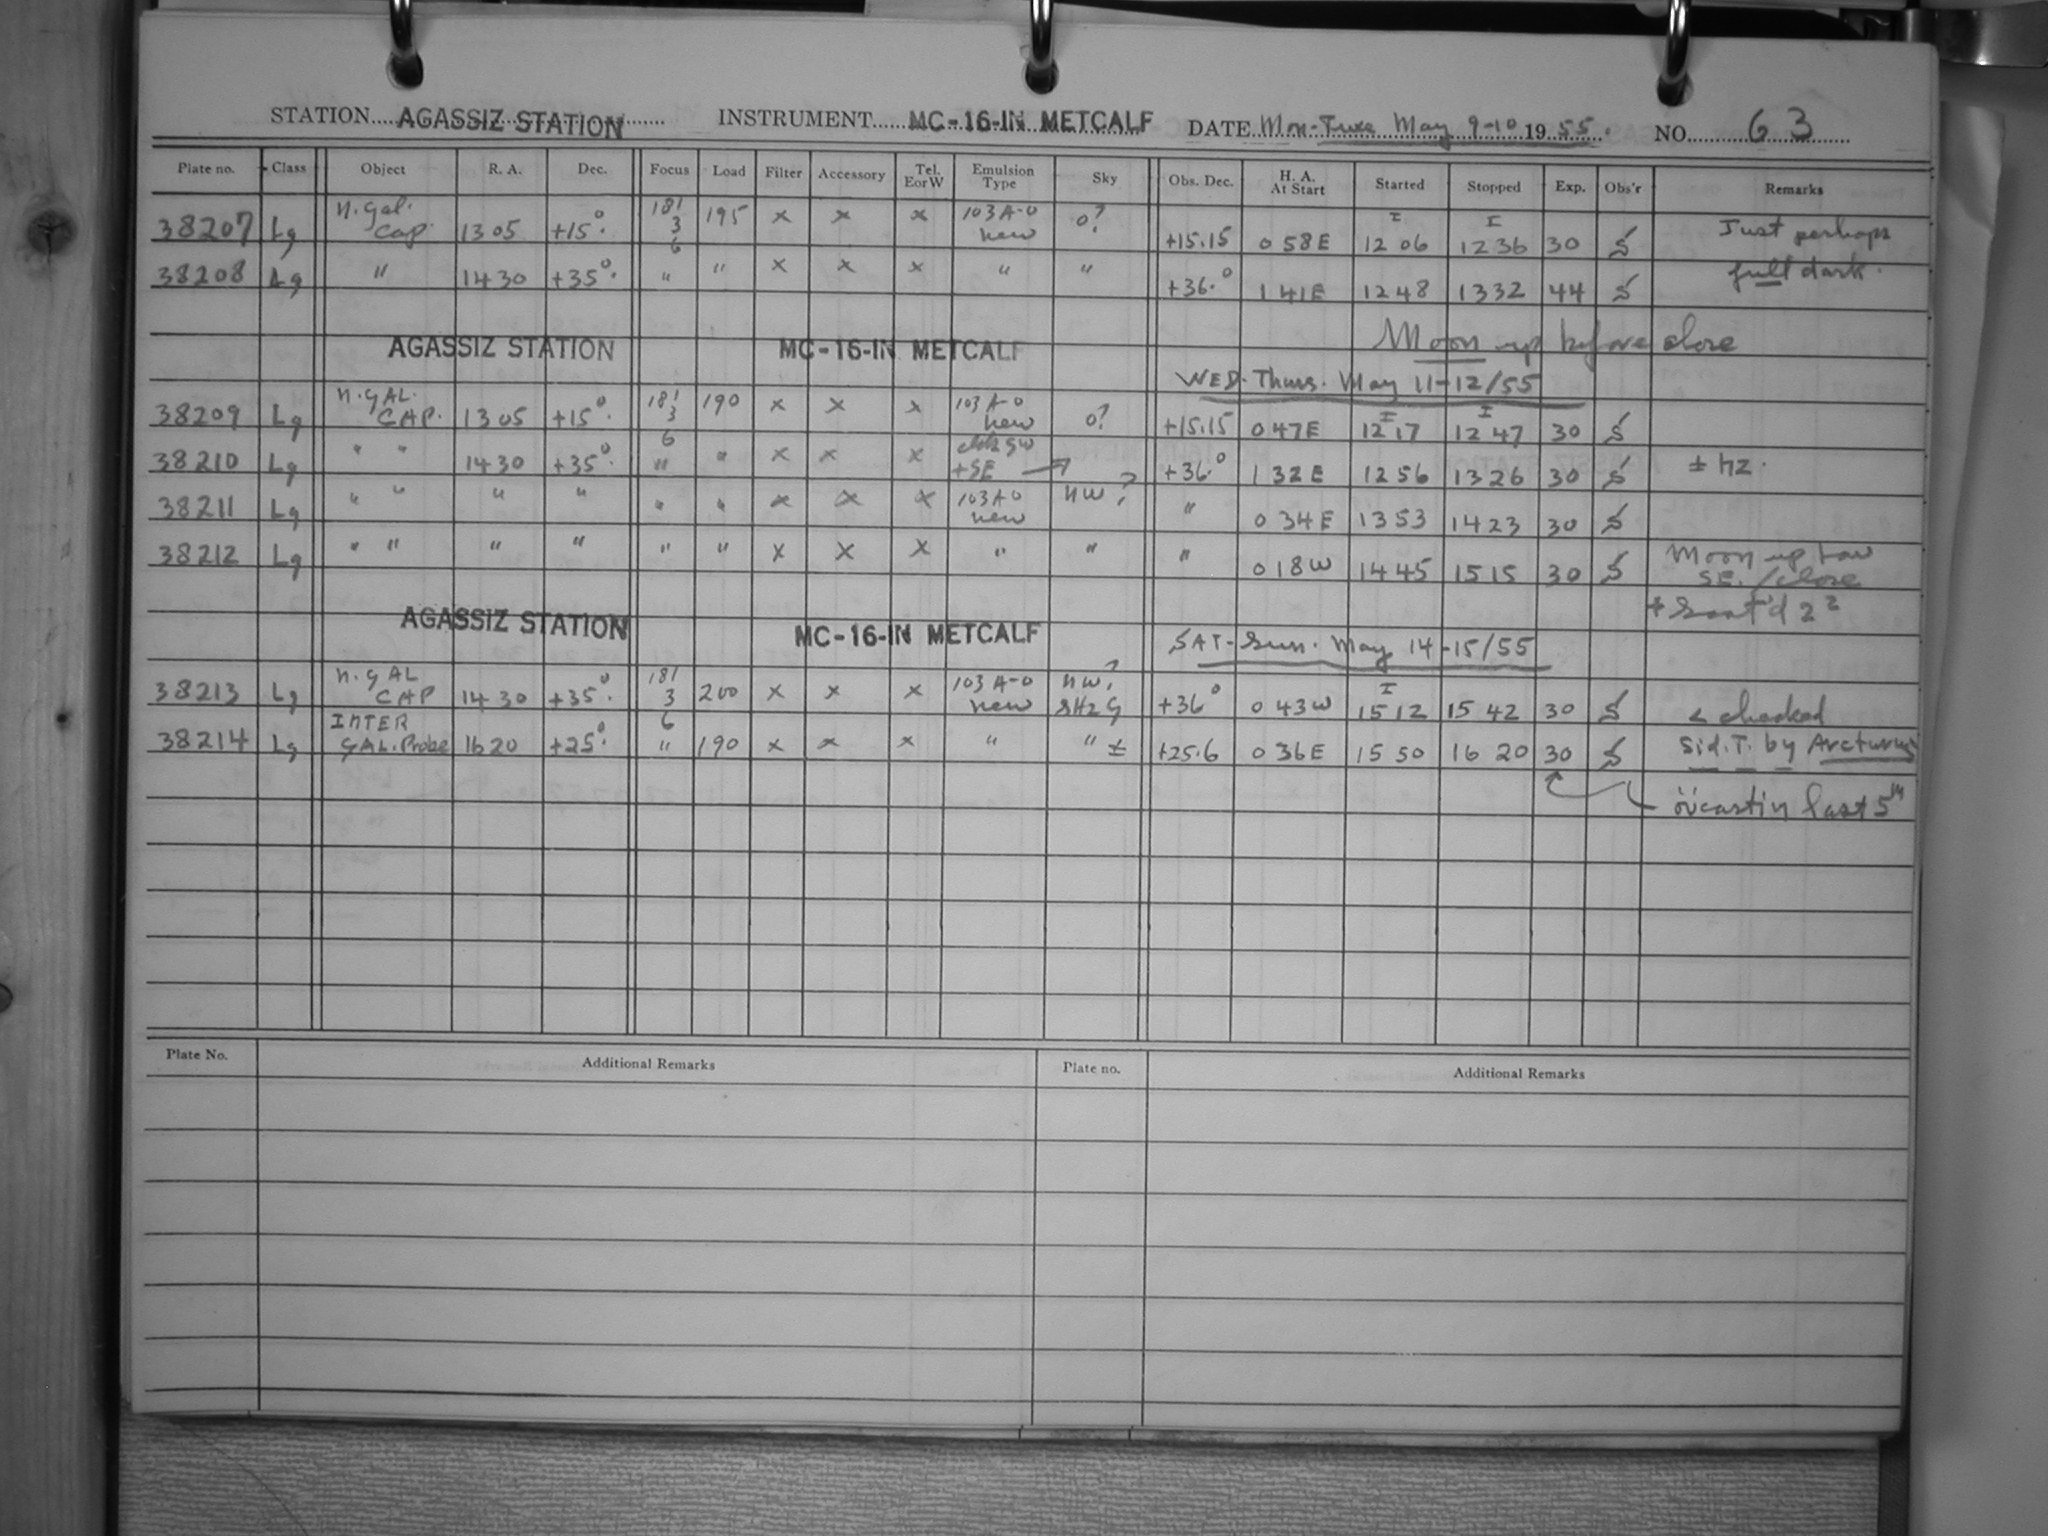 STATION.... AGASSIZ STATION INSTRUMENT.... MC-16-IN METCALF DATE Mon-Tues May 9-10 1955. NO. 63
Plate no. Class Object R. A. Dec. Focus Load Filter Accessory Tel. E or W Emulsion Type Sky Obs. Dec. H. A. At Start Started Stopped Exp. Obs'r Remarks
38207 Lg N. Gal. Cap. 13 05 +15°. 181 3 6 195 x x x 103 A-O new o? +15.15 0 58 E I 12 06 I 12 36 30 S Just perhaps
38208 Lg " 14 30 +35°. " " x x x " " +36.° 1 41 E 12 48 13 32 44 S full dark.
AGASSIZ STATION MC-16-IN METCALF Moon up before close
WED. Thurs. May 11-12/55
38209 Lg N. GAL. CAP. 13 05 +15° 181 3 6 190 x x x 103 A-O new o? +15.15 0 47 E I 12 17 I 12 47 30 S
38210 Lg " " 14 30 +35°. " " x x x +SE +36.° 1 32 E 12 56 13 26 30 S ± HZ.
38211 Lg " " " " " " x x x 103 A-O new NW ? " 0 34 E 13 53 14 23 30 S
38212 Lg " " " " " " x x x " " " 0 18 W 14 45 15 15 30 S Moon up low
SE. / close
AGASSIZ STATION MC-16-IN METCALF SAT-Sun. May 14-15/55
38213 Lg N. GAL CAP 14 30 +35°. 181 3 6 200 x x x 103 A-O new NW. ? SHZ G +36° 0 43 W I 15 12 15 42 30 S checked
38214 Lg INTER GAL. Probe 16 20 +25°. " 190 x x x " " ± +25.6 0 36 E 15 50 16 20 30 S Sid. T. by Arcturus
in last 5m
Plate No. Additional Remarks Plate no. Additional Remarks